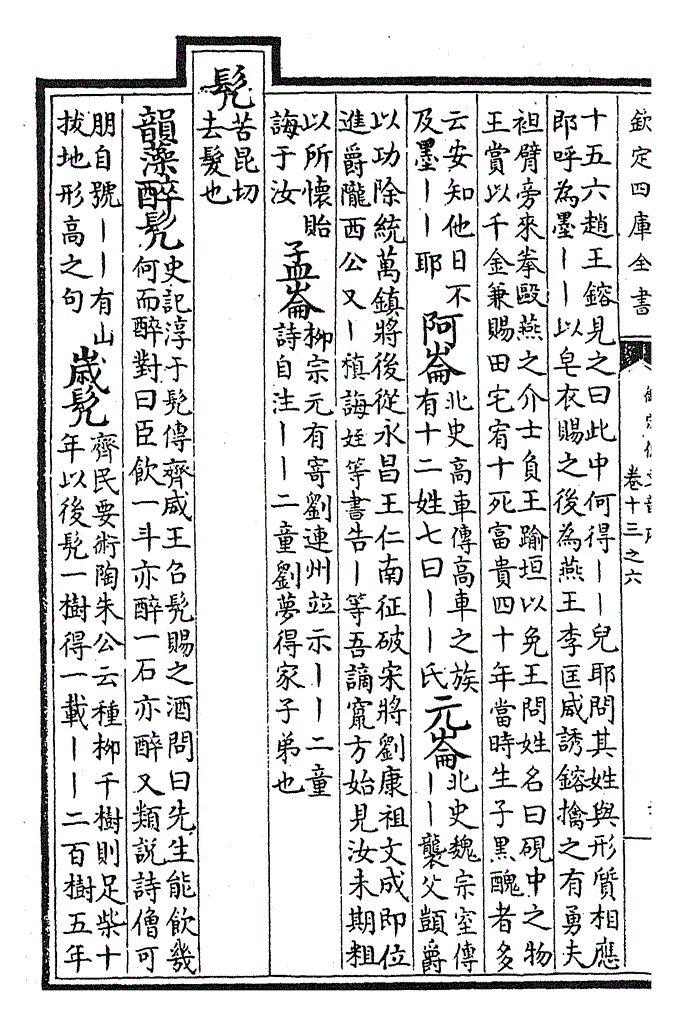 欽定四庫全書
卷十三之六
十五六趙王鎔見之曰此中何得——兒耶問其姓與形質相應
即呼為墨——以皂衣賜之後為燕王李匡威誘鎔擒之有勇夫
袒臂旁來拳毆燕之介士負王踰垣以免王問姓名曰硯中之物
王賞以千金兼賜田宅宥十死富貴四十年當時生子黑醜者多
云安知他日不
及墨——耶
阿崙
北史高車傳高車之族
有十二姓七曰——氏
元崙
北史魏宗室傳
——襲父顗爵
以功除統萬鎮將後從永昌王仁南征破宋將劉康祖文成即位
進爵隴西公又—稹誨姪等書告—等吾謫竄方始見汝未期粗
以所懷貽
誨于汝
孟崙
柳宗元有寄劉連州竝示——二童
詩自注——二童劉夢得家子弟也
髡
苦昆切
去髮也
韻藻醉髡
史記淳于髡傳齊威王召髡賜之酒問曰先生能飲幾
何而醉對曰臣飲一斗亦醉一石亦醉又類說詩僧可
朋自號——有山
拔地形高之句
歲髡
齊民要術陶朱公云種柳千樹則足柴十
年以後髡一樹得一載——二百樹五年